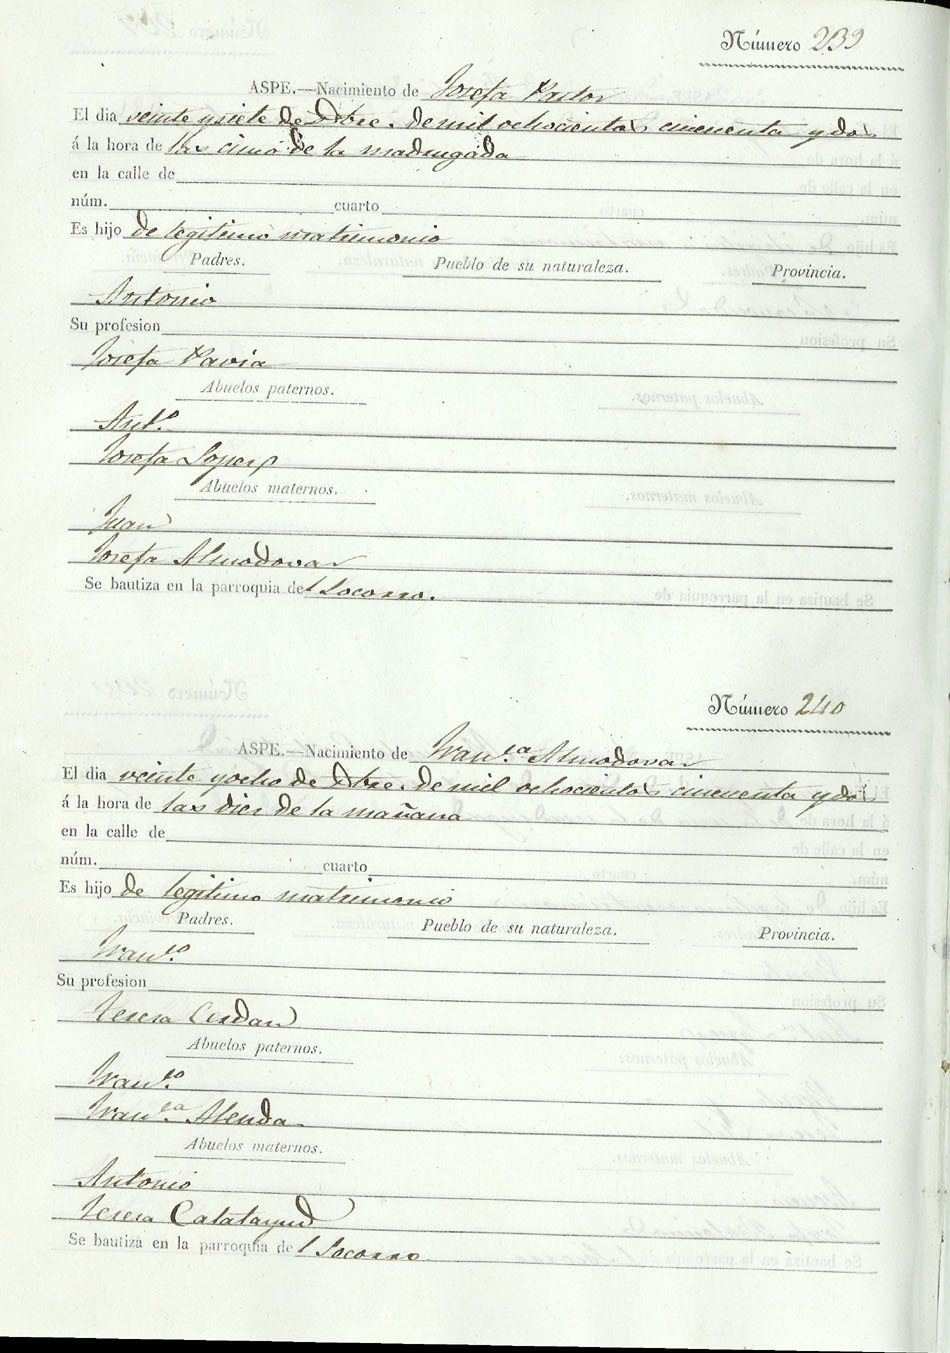 Número 239
ASPE.—Nacimiento de Josefa Pastor
El dia veinte y siete de Dbre. de mil ochocientos cincuenta y dos
á la hora de las cinco de la madrugada
en la calle de
núm. cuarto
Es hijo de legitimo matrimonio
Padres. Pueblo de su naturaleza. Provincia.
Antonio
Su profesion
Josefa Pavia
Abuelos paternos.
Ant.º
Josefa Lopez
Abuelos maternos.
Juan
Josefa Almodovar
Se bautiza en la parroquia del Socorro.
Número 240
ASPE.—Nacimiento de Fran.ca Almodovar
El dia veinte y ocho de Dbre. de mil ochocientos cincuenta y dos
á la hora de las diez de la mañana
en la calle de
núm. cuarto
Es hijo de legitimo matrimonio
Padres. Pueblo de su naturaleza. Provincia.
Fran.co
Su profesion
Teresa Cerdan
Abuelos paternos.
Fran.co
Fran.ca Alenda
Abuelos maternos.
Antonio
Teresa Calatayud
Se bautiza en la parroquia del Socorro